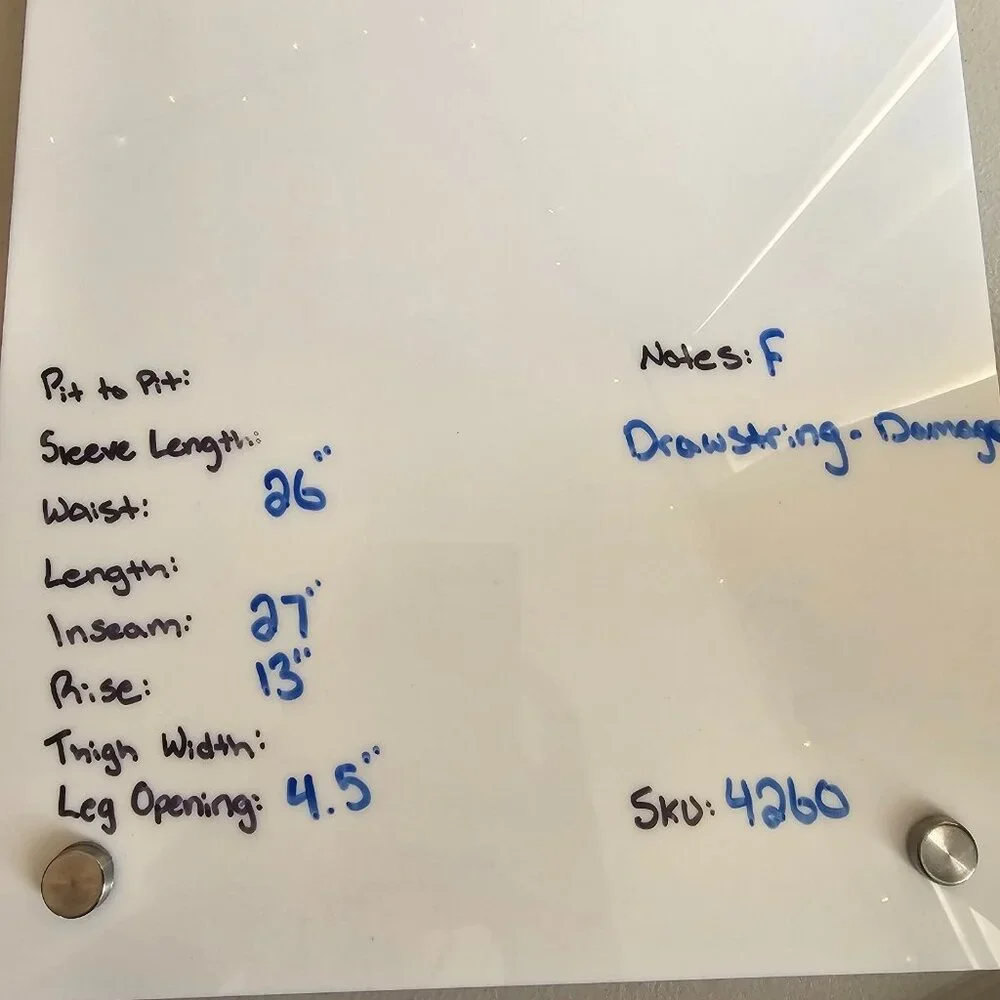 Pit to Pit:
Sleeve Length:
Waist: 26"
Length:
Inseam: 27"
Rise: 13"
Thigh Width:
Leg Opening: 4.5"
Notes: F
Drawstring - Damage
SKU: 4260